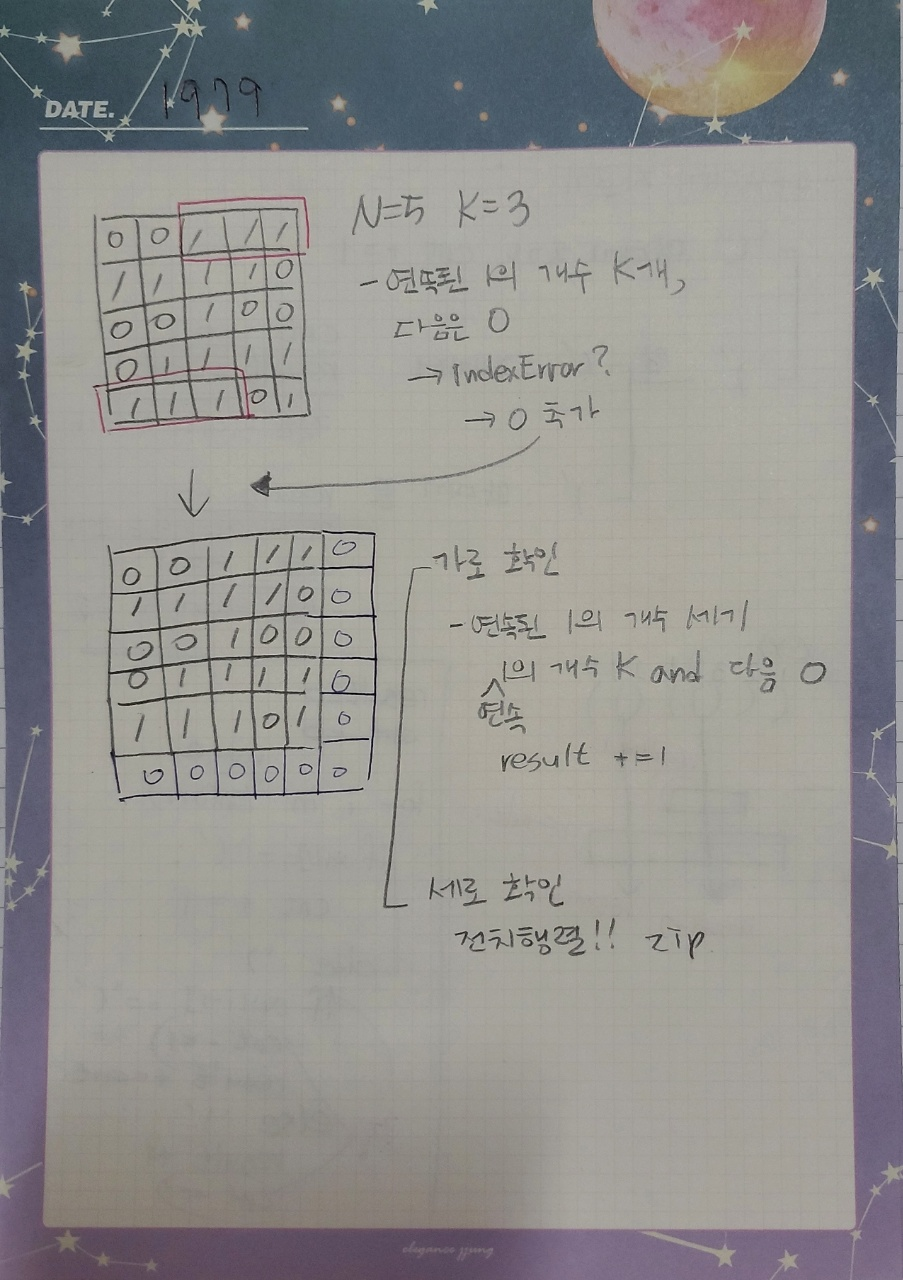 DATE. 1979
N=5 K=3
0 0 1 1 1
1 1 1 1 0
0 0 1 0 0
0 1 1 1 1
1 1 1 0 1
- 연속된 1의 개수 K개,
다음은 0
→ IndexError?
→ 0 추가
0 0 1 1 1 0
1 1 1 1 0 0
0 0 1 0 0 0
0 1 1 1 1 0
1 1 1 0 1 0
0 0 0 0 0 0
가로 확인
- 연속된 1의 개수 세기
1의 개수 K and 다음 0
연속
result +=1
세로 확인
전치행렬!! zip
elegance jjung